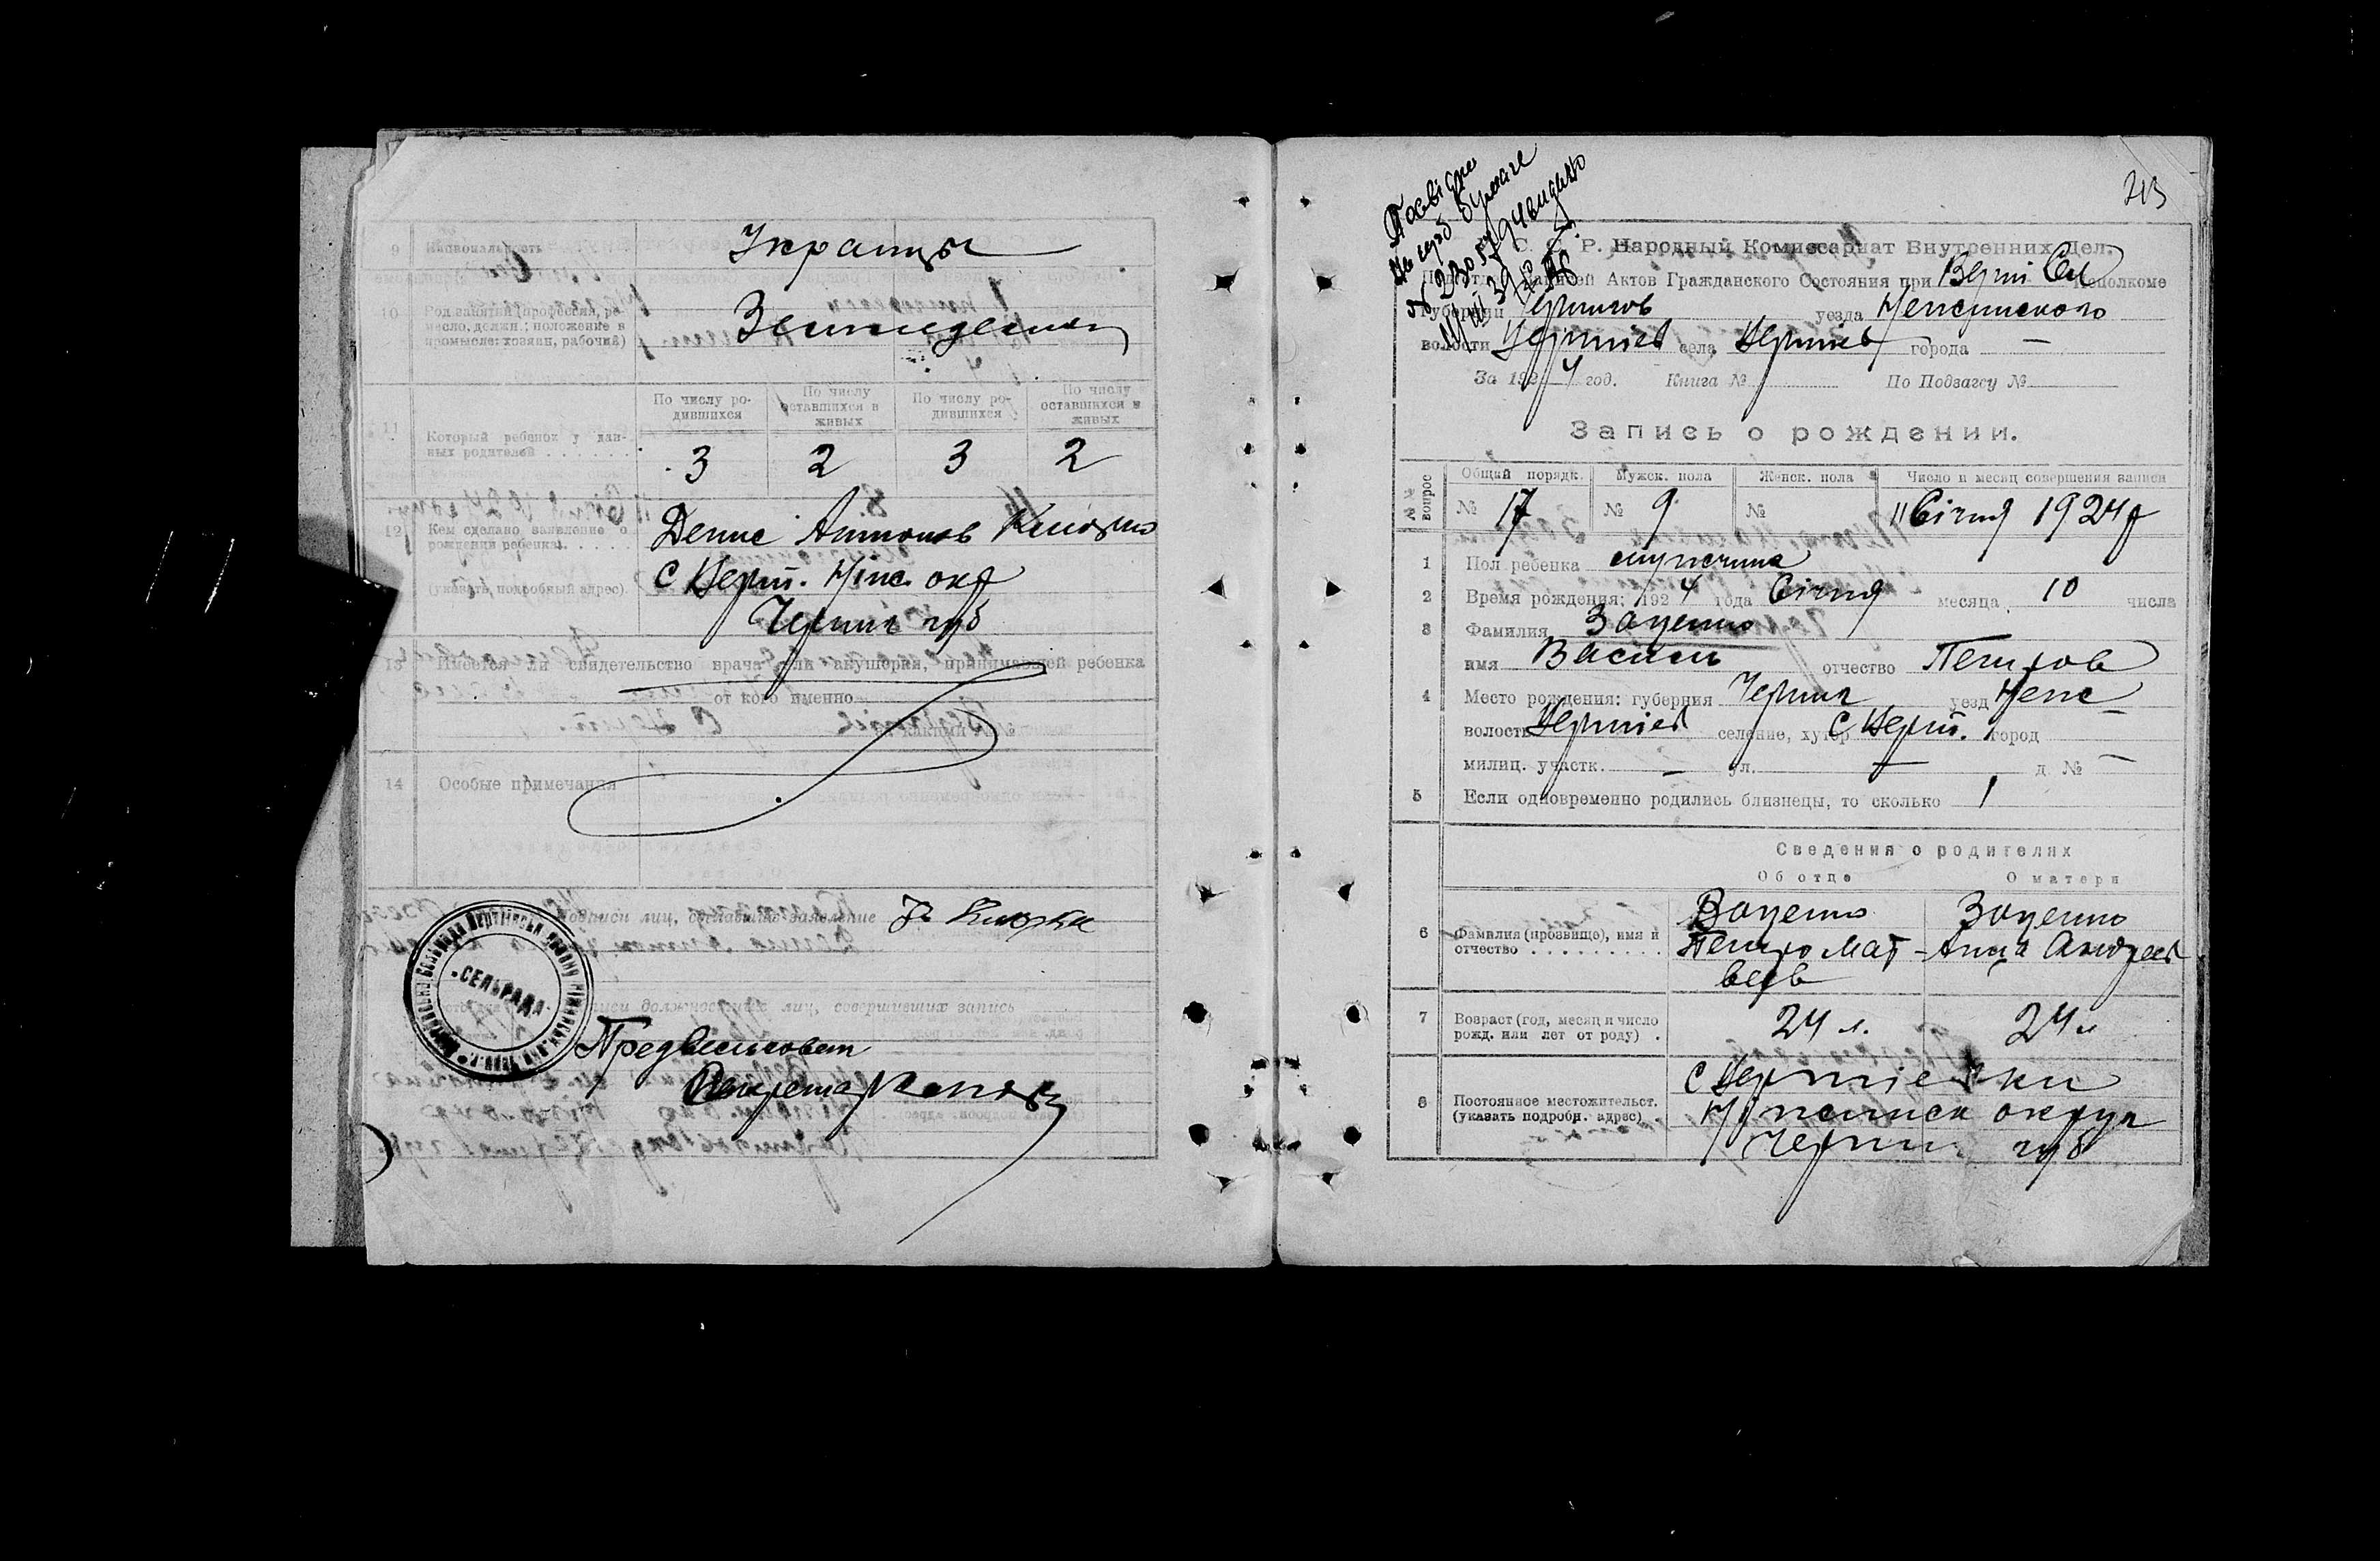 9 Национальность
Украинцы
10 Род занятий (профессия, ре-
месло, должн.; положение в
промысле: хозяин, рабочий)
По числу ро-
дившихся
По числу
оставшихся в
живых
По числу ро-
дившихся
По числу
оставшихся в
живых
11 Который ребенок у дан-
ных родителей
3 2 3 2
12 Кем сделано заявление о
рождении ребенка
(указать, подробный адрес)
Денис Антонов
с Верт. Ніж. окр
Черниг губ
13 Имеется ли свидетельство врача или акушерки, принимавшей ребенка
от кого именно
14 Особые примечания
Подписи лиц, сделавших заявление
СЕЛЬРАДА
должностных лиц, совершивших запись
Секретарь
213
С. С. Р. Народный Комиссариат Внутренних Дел.
Записей Актов Гражданского Состояния при Верт Сел Исполкоме
Губернии Чернигов уезда Неженского
волости Вертиев села Вертиев города —
За 1924 год. Книга № По Подзагсу №
Запись о рождении.
№№ вопрос
Общий порядк. Мужск. пола Женск. пола Число и месяц совершения записи
№ 17 № 9 № 11 Січня 1924 р
1 Пол ребенка мужчина
2 Время рождения: 1924 года Січня месяца 10 числа
3 Фамилия Заценко
имя Василь отчество Петров
4 Место рождения: губерния Черниг уезд Неж
волость Вертиев селение, хутор с Верт. город —
милиц. участк. — ул. — д. № —
5 Если одновременно родились близнецы, то сколько 1
Сведения о родителях
Об отце О матери
6 Фамилия (прозвище), имя и
отчество
Заценко
Петро Мат-
веев
Заценко
Анна Андреев
7 Возраст (год, месяц и число
рожд. или лет от роду)
24 л. 24 л
8 Постоянное местожительст.
(указать подробн. адрес)
с Вертіевки
Ніжинск округ
Черниг губ